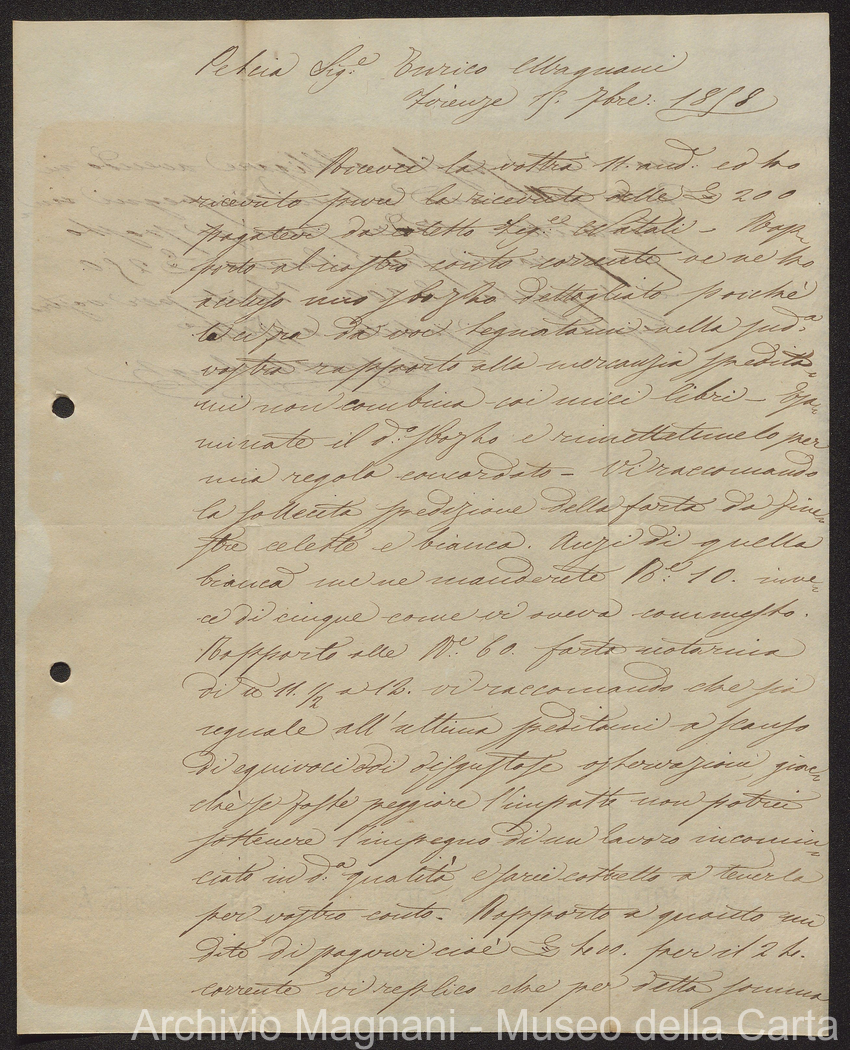 Pescia Sig.e Enrico Magnani
Firenze 15. 7bre: 1858
Ricevei la vostra 11. and: ed ho
ricevuto pure la ricevuta delle £ 200
pagatevi da detto Sig.e Natali - Rap=
porto al nostro conto corrente ve ne ho
accluso uno sbozzo dettagliato poichè
la cifra da voi segnatami nella sud.a
vostra rapporto alla mercanzia spedita=
mi non combina coi miei libri - Esa=
minate il d.o sbozzo e rimettetemelo per
mia regola concordato - Vi raccomando
la sollecita spedizione della carta da fine=
stre celeste e bianca. Anzi di quella
bianca me ne manderete R.e 10. inve=
ce di cinque come vi aveva commesso.
Rapporto alle R.e 60. carta notarina
di 11. 1/2 a 12. vi raccomando che sia
uguale all'ultima speditami a scanso
di equivoci e di disgustose osservazioni, giac=
chè se fosse peggiore l'impasto non potrei
sostenere l'impegno di un lavoro incomin=
ciato in d.a qualità e sarei costretto a tenerla
per vostro conto. Rapporto a quanto mi
dite di pagarvi cioè £ per il 24.
corrente vi replico che per detta somma
Archivio Magnani - Museo della Carta